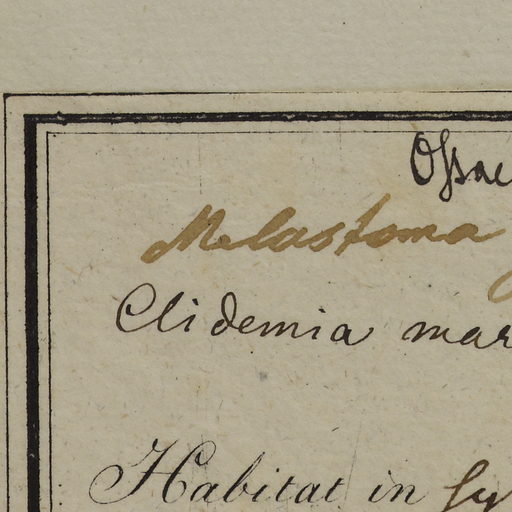 Ossae
Melastoma
Clidemia mar
Habitat in sy